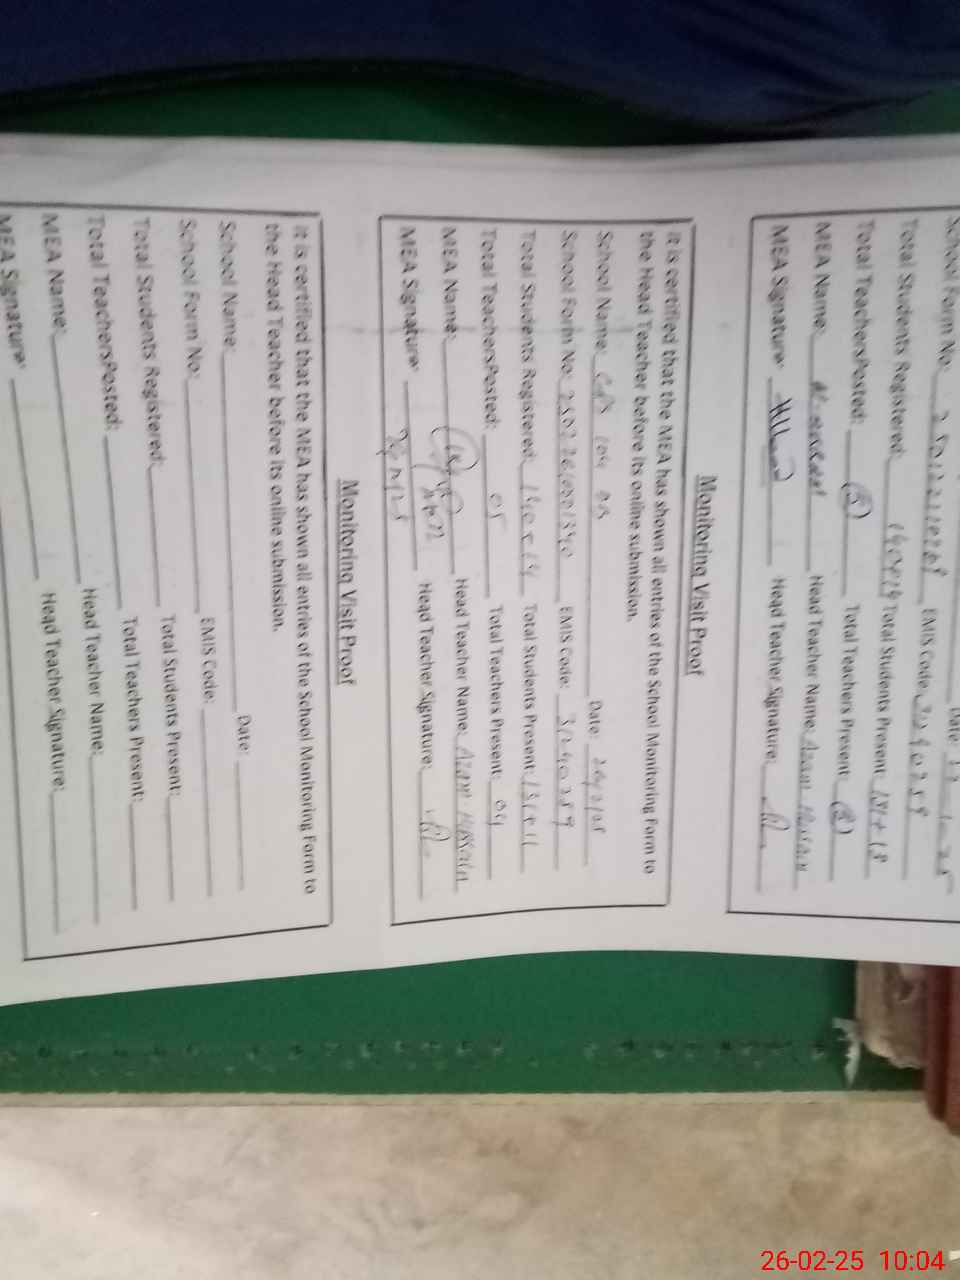 School Form No: EMIS Code
Total Students Registered: Total Students Present:
Total TeachersPosted: (5) Total Teachers Present: (5)
MEA Name: Head Teacher Name: Azam Hussain
MEA Signature: Head Teacher Signature:
Monitoring Visit Proof
It is certified that the MEA has shown all entries of the School Monitoring Form to
the Head Teacher before its online submission.
School Name: Date:
School Form No: EMIS Code:
Total Students Registered: Total Students Present:
Total TeachersPosted: 05 Total Teachers Present: 04
MEA Name: Head Teacher Name: Azam Hussain
MEA Signature: Head Teacher Signature:
Monitoring Visit Proof
It is certified that the MEA has shown all entries of the School Monitoring Form to
the Head Teacher before its online submission.
School Name: Date:
School Form No: EMIS Code:
Total Students Registered: Total Students Present:
Total TeachersPosted: Total Teachers Present:
MEA Name: Head Teacher Name:
MEA Signature: Head Teacher Signature:
26-02-25 10:04